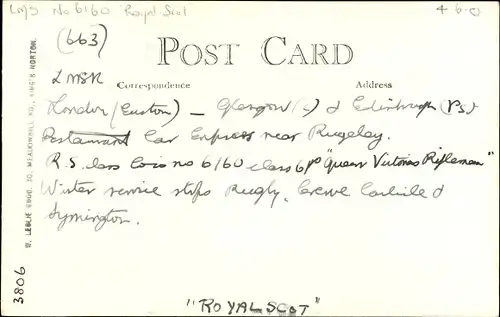 LMS No 6160 "Royal Scot"
4-6-0
(663)
POST CARD
LMSR
Correspondence
Address
London (Euston) – Glasgow (C) & Edinburgh (P.S.)
Restaurant Car Express near Rugeley.
R.S. class Loco no 6160 class 6P "Queen Victorias Rifleman"
Winter service stops Rugby, Crewe Carlisle &
Symington.
W. LESLIE GOOD, 30, MEADOWHILL RD., KING'S NORTON.
3806
"ROYAL SCOT"